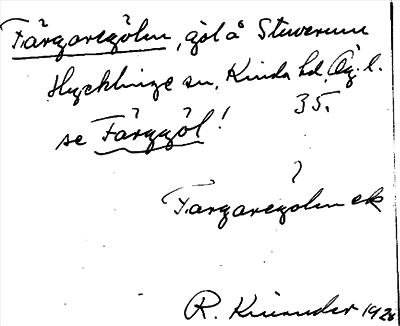 Färgaregölen, göl å Stuverum
Hycklinge sn, Kinda hd. Ög. l.
35.
se Färggöl!
?
Fargaregölen ek
R. Kinander 1926